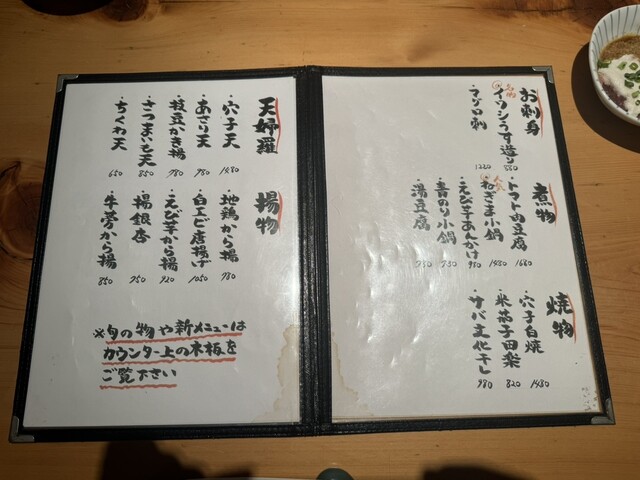 お刺身
名物
・イワシうす造り 880
・マグロ刺 1220
煮物
・トマト肉豆腐 1680
人気
・ねぎま小鍋 1480
・えび芋あんかけ 980
・青のり小鍋 980
・湯豆腐
焼物
・穴子白焼 1480
・米茄子田楽 820
・サバ文化干し 980
天婦羅
・穴子天 1480
・あさり天 980
・枝豆かき揚 780
・さつまいも天 850
・ちくわ天 650
揚物
・地鶏から揚 980
・白エビ唐揚げ 1050
・えび芋から揚 920
・揚銀杏 950
・牛蒡から揚 850
※旬の物や新メニューは
カウンター上の木板を
ご覧下さい